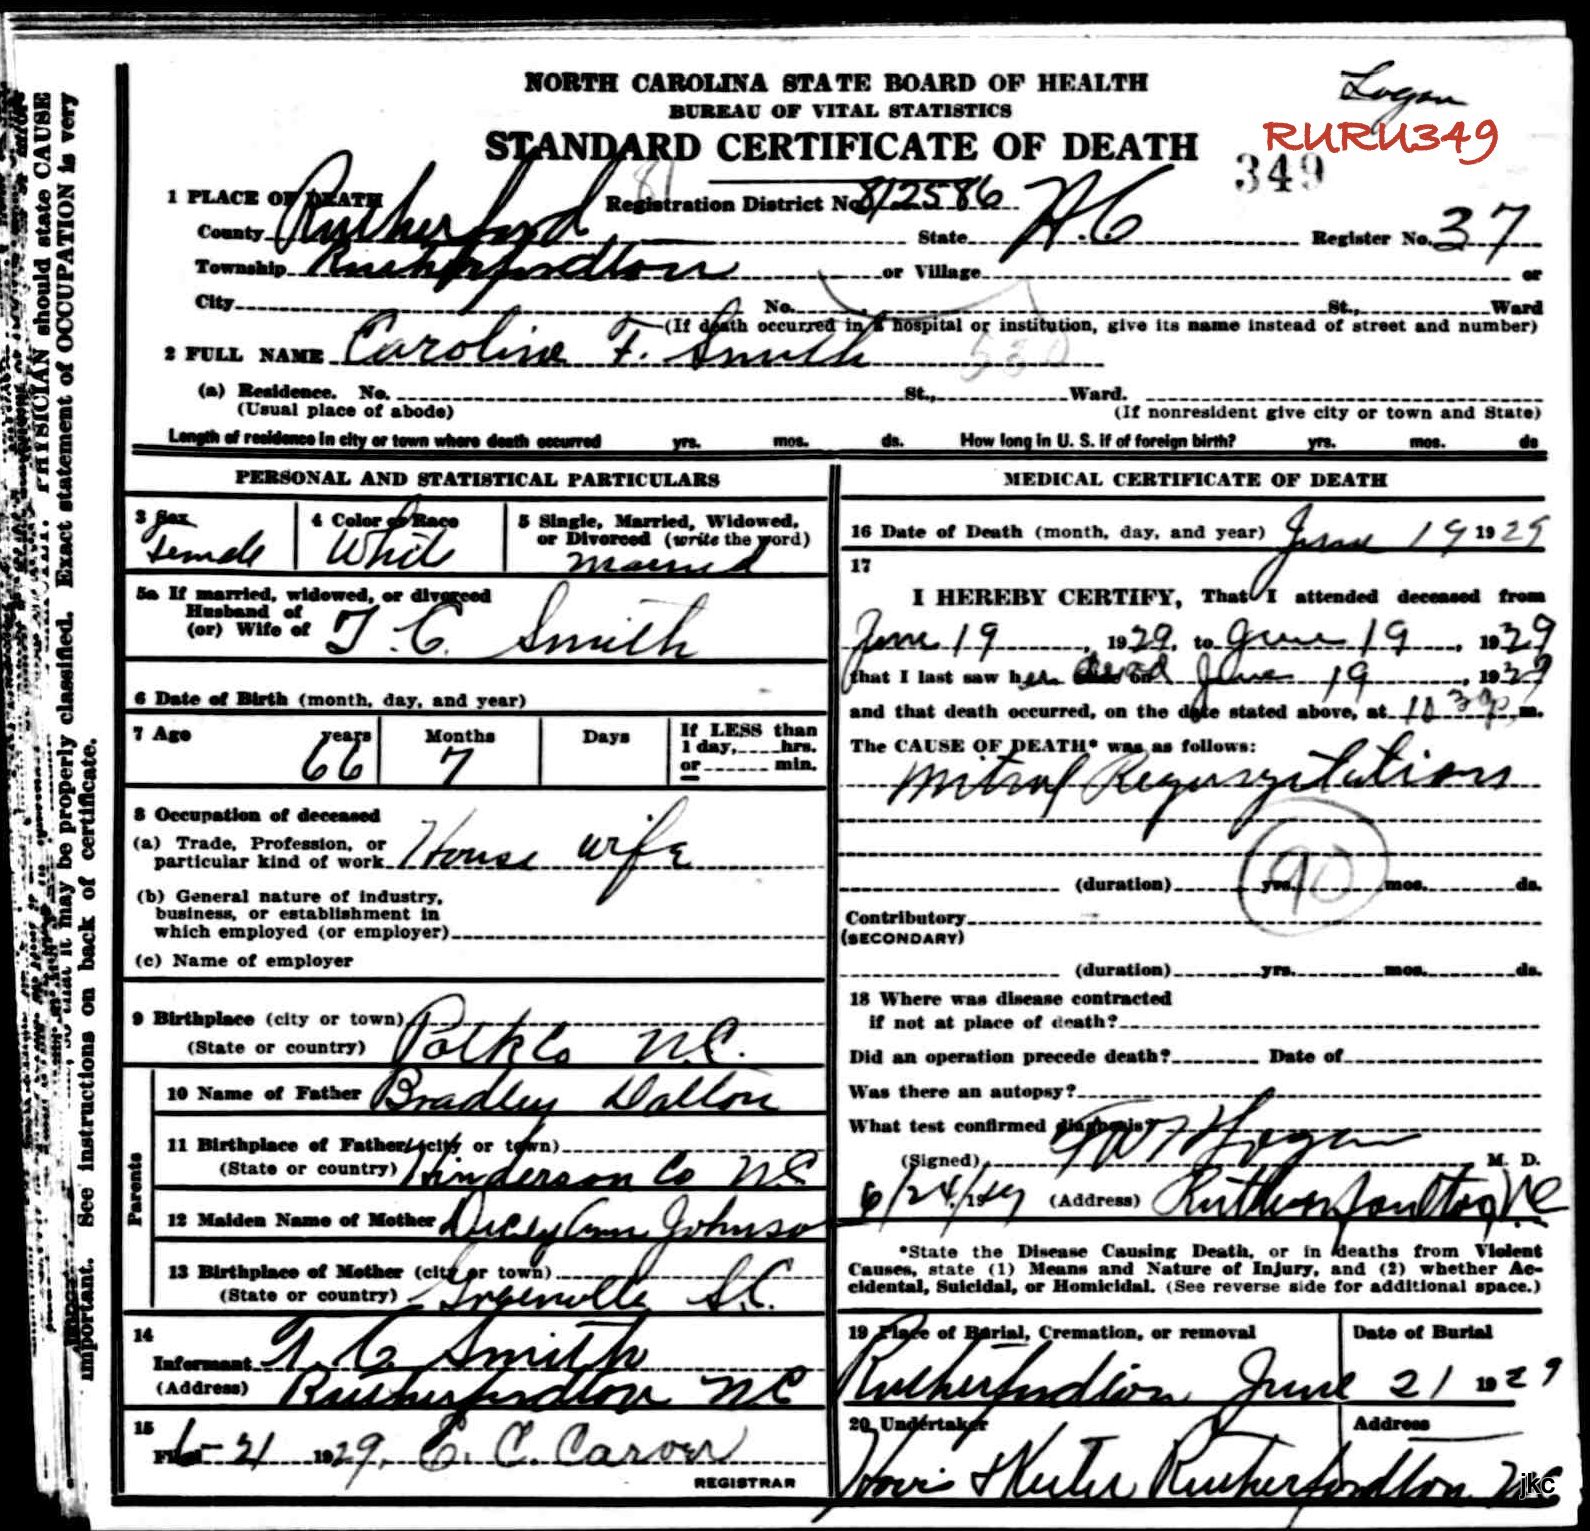 NORTH CAROLINA STATE BOARD OF HEALTH
Logan
BUREAU OF VITAL STATISTICS
STANDARD CERTIFICATE OF DEATH
RURU349
349
1 PLACE OF DEATH
81
Registration District No. 812586
County Rutherford State N.C Register No. 37
Township Rutherfordton or Village or
City No. St., Ward
(If death occurred in a hospital or institution, give its name instead of street and number)
2 FULL NAME Caroline F. Smith
(a) Residence. No. St., Ward.
(Usual place of abode) (If nonresident give city or town and State)
Length of residence in city or town where death occurred yrs. mos. ds. How long in U. S. if of foreign birth? yrs. mos. ds
PERSONAL AND STATISTICAL PARTICULARS
3 Sex 4 Color or Race 5 Single, Married, Widowed,
or Divorced (write the word)
Female White Married
5a If married, widowed, or divorced
Husband of
(or) Wife of T. C. Smith
6 Date of Birth (month, day, and year)
7 Age years Months Days If LESS than
1 day, hrs.
66 7 or min.
8 Occupation of deceased
(a) Trade, Profession, or
particular kind of work House wife
(b) General nature of industry,
business, or establishment in
which employed (or employer)
(c) Name of employer
9 Birthplace (city or town)
(State or country) Polk Co N.C.
Parents
10 Name of Father Bradley Dalton
11 Birthplace of Father (city or town)
(State or country) Hinderson Co N.C
12 Maiden Name of Mother Ann Johnson
13 Birthplace of Mother (city or town)
(State or country) Greenville S.C.
14
Informant T. C. Smith
(Address) Rutherfordton N C
15
Filed 6-21 1929, E. C. Carver
REGISTRAR
MEDICAL CERTIFICATE OF DEATH
16 Date of Death (month, day, and year) June 19 1929
17
I HEREBY CERTIFY, That I attended deceased from
June 19, 1929, to June 19, 1929
that I last saw her June 19, 1929
and that death occurred, on the date stated above, at 10 30 p. m.
The CAUSE OF DEATH* was as follows:
Mitral Regurgitations
90
(duration) yrs. mos. ds.
Contributory
(SECONDARY)
(duration) yrs. mos. ds.
18 Where was disease contracted
if not at place of death?
Did an operation precede death? Date of
Was there an autopsy?
What test confirmed diagnosis?
(Signed) Logan M. D.
6/24/1929 (Address) Rutherfordton N C
*State the Disease Causing Death, or in deaths from Violent
Causes, state (1) Means and Nature of Injury, and (2) whether Ac-
cidental, Suicidal, or Homicidal. (See reverse side for additional space.)
19 Place of Burial, Cremation, or removal Date of Burial
Rutherfordton June 21 1929
20 Undertaker Address
Rutherfordton N C
jkc
PHYSICIAN should state CAUSE
Exact statement of OCCUPATION is very
it may be properly classified.
important. See instructions on back of certificate.